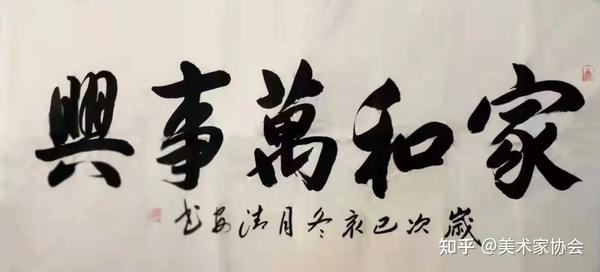 家和萬事興
歲次己亥冬月清安书
知乎 @美术家协会